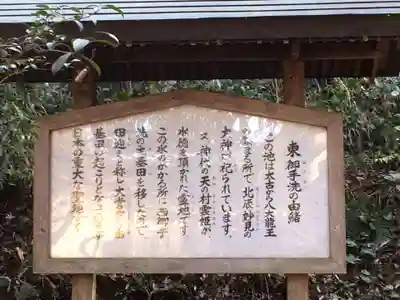 東御手洗の由緒
この池は太古から八大龍王
のいます所で、北辰妙見の
大神も祀られています。
又神代の天の村雲姫が
水徳を頂かれた霊地です
この水のかかる所に御
の手 田を移した所で、
田迎えと称し大
田の起こりとなって
日本の重大な聖地です